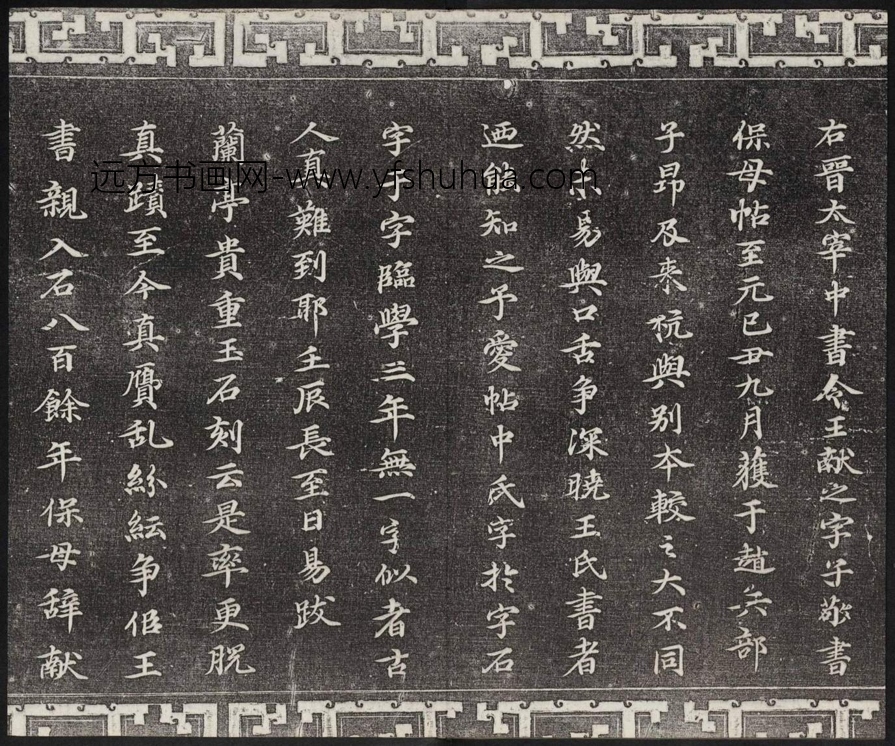 右晋太宰中書令王献之字子敬書
保母帖至元已丑九月獲于趙兵部
子昻及来杭與别本較之大不同
然未易與口舌争深曉王氏書者
迺能知之予愛帖中氏字於字石
字于字臨學三年無一字似者古
人真難到耶壬辰長至日易跋
蘭亭貴重玉石刻云是率更脱
真蹟至今真贋乱紛紜争但王
書親入石八百餘年保母辞献
远方书画网-www.yfshuhua.com